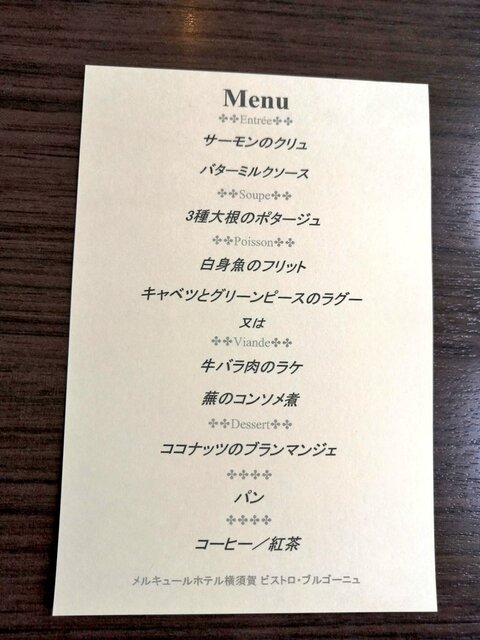 Menu
✤✤Entrée✤✤
サーモンのクリュ
バターミルクソース
✤✤Soupe✤✤
3種大根のポタージュ
✤✤Poisson✤✤
白身魚のフリット
キャベツとグリーンピースのラグー
又は
✤✤Viande✤✤
牛バラ肉のラケ
蕪のコンソメ煮
✤✤Dessert✤✤
ココナッツのブランマンジェ
✤✤✤✤
パン
✤✤✤✤
コーヒー／紅茶
メルキュールホテル横須賀 ビストロ・ブルゴーニュ